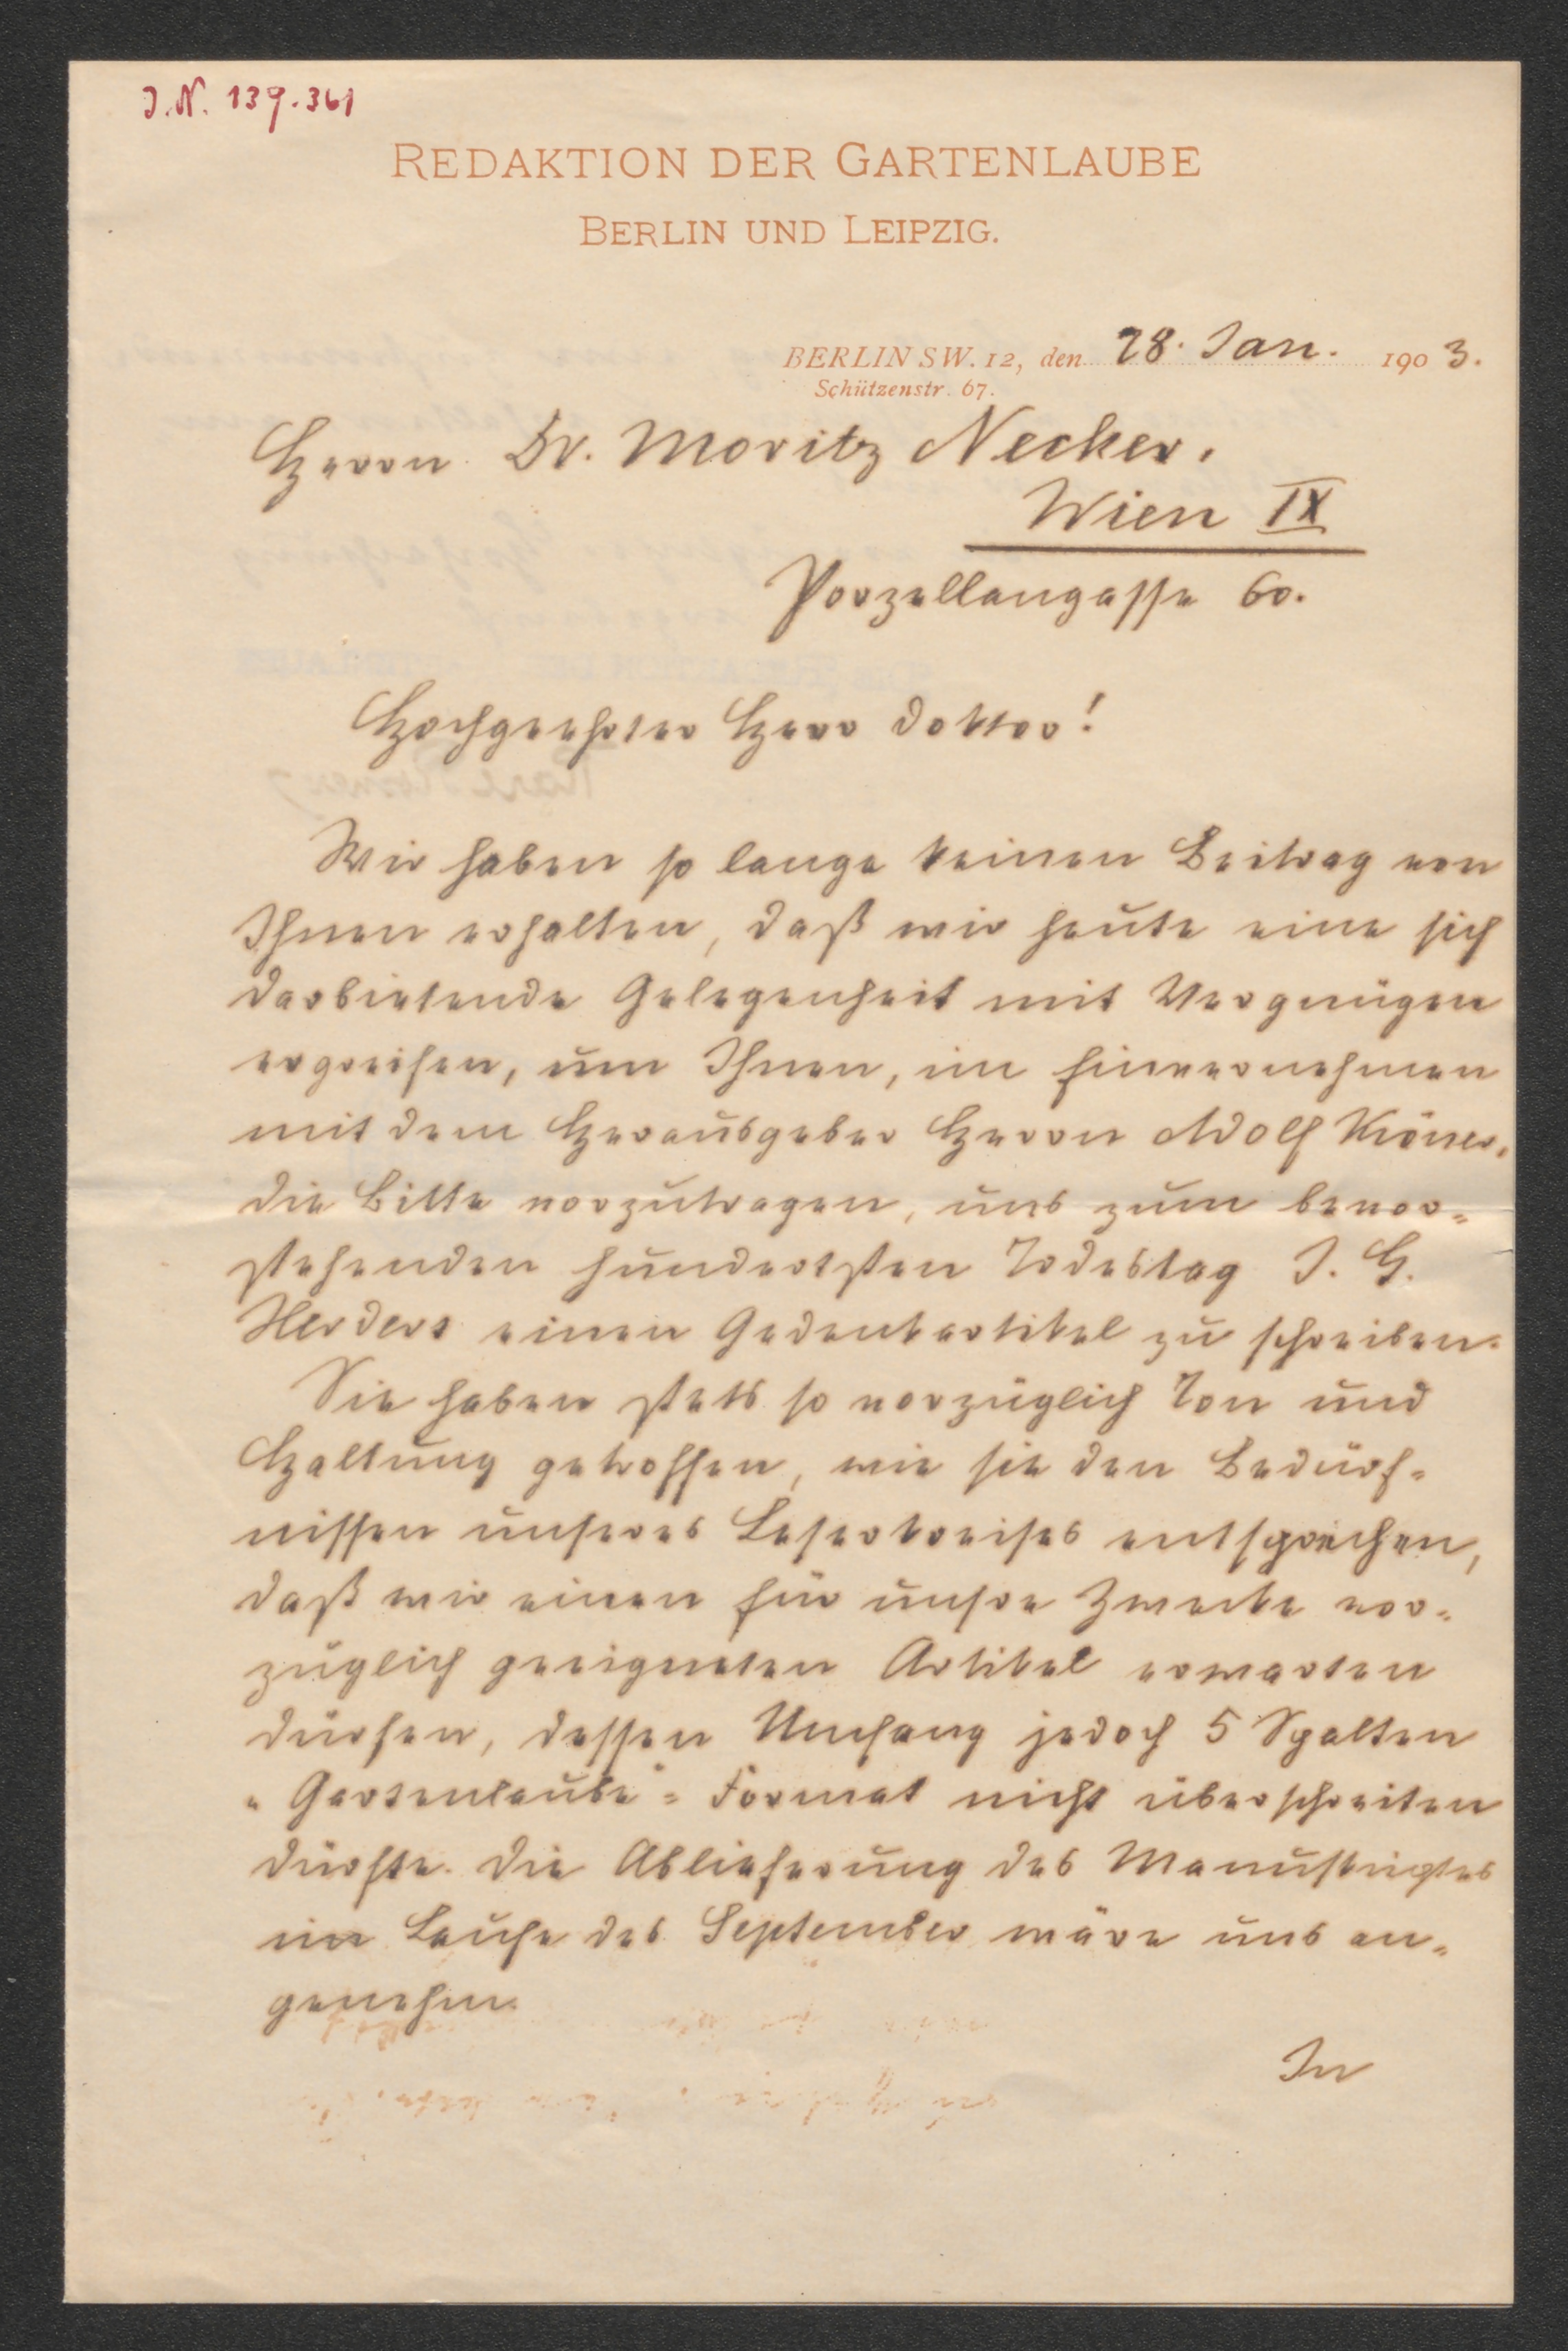 I.N. 139.361
REDAKTION DER GARTENLAUBE
BERLIN UND LEIPZIG.
BERLIN SW. 12, den 28. Jan. 1903.
Schützenstr. 67.
Herrn Dr. Moritz Necker.
Wien IX
Porzellangasse 60.
Hochgeehrter Herr Doktor!
Wir haben so lange keinen Beitrag von
Ihnen erhalten, daß wir heute eine sich
darbietende Gelegenheit mit Vergnügen
ergreifen, um Ihnen, im Einvernehmen
mit dem Herausgeber Herrn Adolf Kröner,
die Bitte vorzutragen, uns zum bevor-
stehenden hundertsten Todestag J. G.
Herders einen Gedenkartikel zu schreiben.
Sie haben stets so vorzüglich Ton und
Haltung getroffen, wie sie den Bedürf-
nissen unseres Leserkreises entsprechen,
daß wir einen für unsre Zwecke vor-
züglich geeigneten Artikel erwarten
dürfen, dessen Umfang jedoch 5 Spalten
„Gartenlaube"-Format nicht überschreiten
dürfte. Die Ablieferung des Manuskriptes
im Laufe des September wäre uns an-
genehm.
In